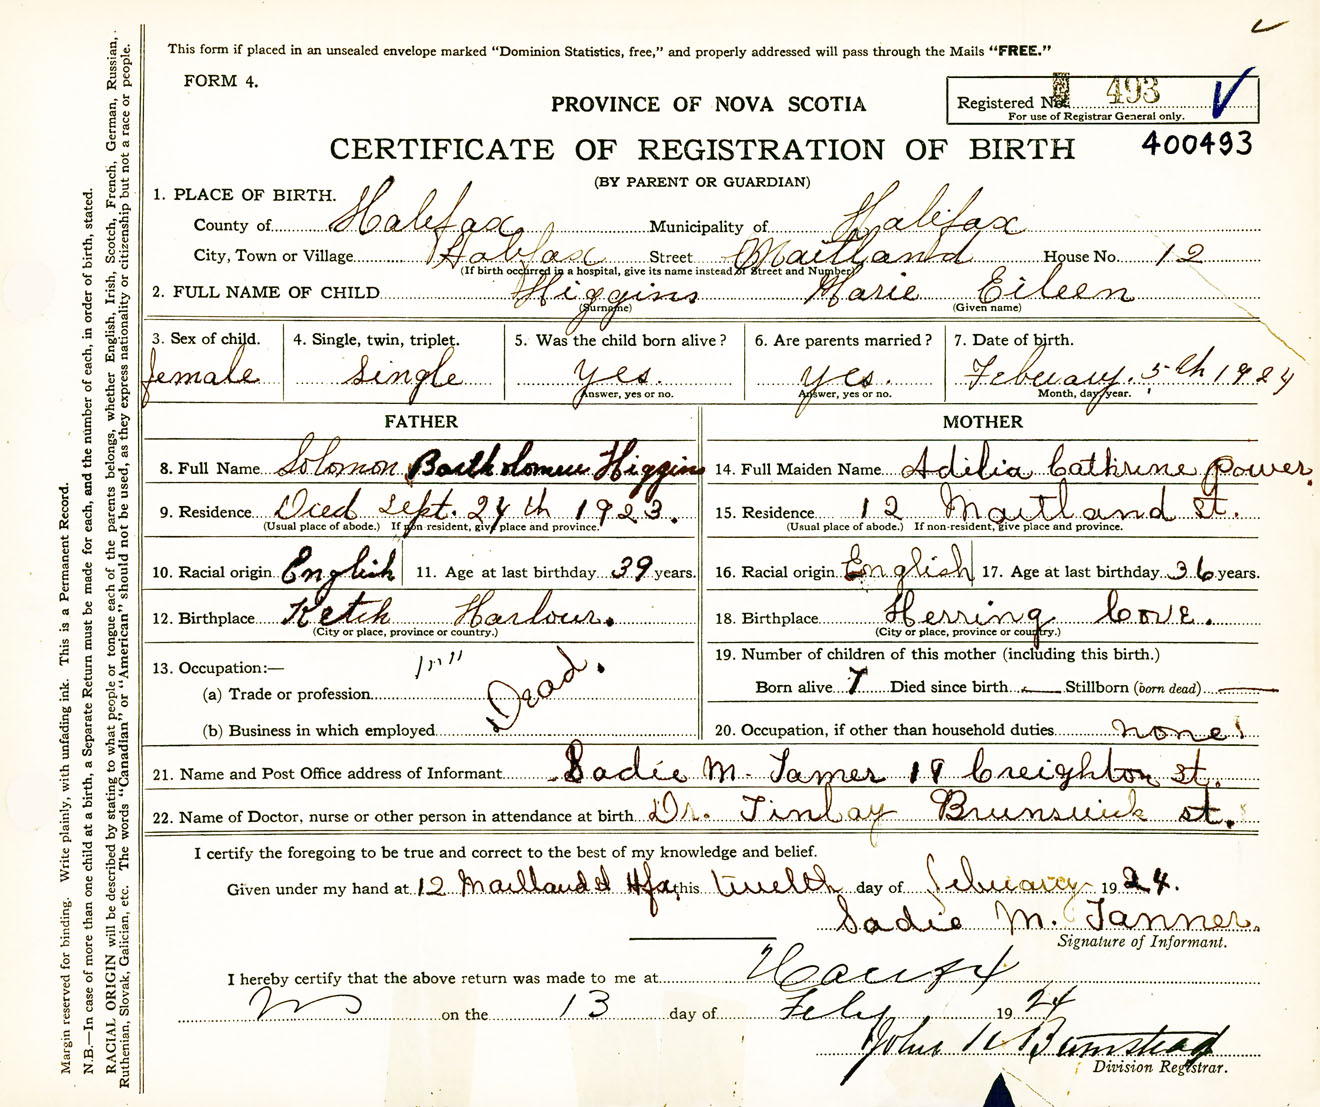 This form if placed in an unsealed envelope marked "Dominion Statistics, free," and properly addressed will pass through the Mails "FREE."
FORM 4.
Registered No. 493
For use of Registrar General only.
PROVINCE OF NOVA SCOTIA
CERTIFICATE OF REGISTRATION OF BIRTH
400493
(BY PARENT OR GUARDIAN)
1. PLACE OF BIRTH.
County of Halifax Municipality of Halifax
City, Town or Village Halifax Street Maitland House No. 12
(If birth occurred in a hospital, give its name instead of Street and Number)
2. FULL NAME OF CHILD Higgins Marie Eileen
(Surname) (Given name)
3. Sex of child. 4. Single, twin, triplet. 5. Was the child born alive? 6. Are parents married? 7. Date of birth.
female single yes. yes. Febuary. 5th 1924
Answer, yes or no. Answer, yes or no. Month, day, year.
FATHER MOTHER
8. Full Name Solomon Bartholomew Higgins 14. Full Maiden Name Adilia Cathrine Power.
9. Residence Died Sept. 24th 1923. 15. Residence 12 Maitland St.
(Usual place of abode.) If non resident, give place and province. (Usual place of abode.) If non-resident, give place and province.
10. Racial origin English 11. Age at last birthday 39 years. 16. Racial origin English 17. Age at last birthday 36 years.
12. Birthplace Ketch Harbour. 18. Birthplace Herring Cove.
(City or place, province or country.) (City or place, province or country.)
13. Occupation:— 19. Number of children of this mother (including this birth.)
(a) Trade or profession Dead. Born alive 7 Died since birth — Stillborn (born dead) —
(b) Business in which employed 20. Occupation, if other than household duties none
21. Name and Post Office address of Informant Sadie M. Tanner 19 Creighton St.
22. Name of Doctor, nurse or other person in attendance at birth Dr. Finlay Brunswick st.
I certify the foregoing to be true and correct to the best of my knowledge and belief.
Given under my hand at 12 Maitland St Hfx this twelth day of Febuary 1924.
Sadie M. Tanner.
Signature of Informant.
I hereby certify that the above return was made to me at Halifax
NS on the 13 day of Feby 1924
John H Bumstead
Division Registrar.
Margin reserved for binding. Write plainly, with unfading ink. This is a Permanent Record.
N.B.—In case of more than one child at a birth, a Separate Return must be made for each, and the number of each, in order of birth, stated.
RACIAL ORIGIN will be described by stating to what people or tongue each of the parents belongs, whether English, Irish, Scotch, French, German, Russian,
Ruthenian, Slovak, Galician, etc. The words "Canadian" or "American" should not be used, as they express nationality or citizenship but not a race or people.